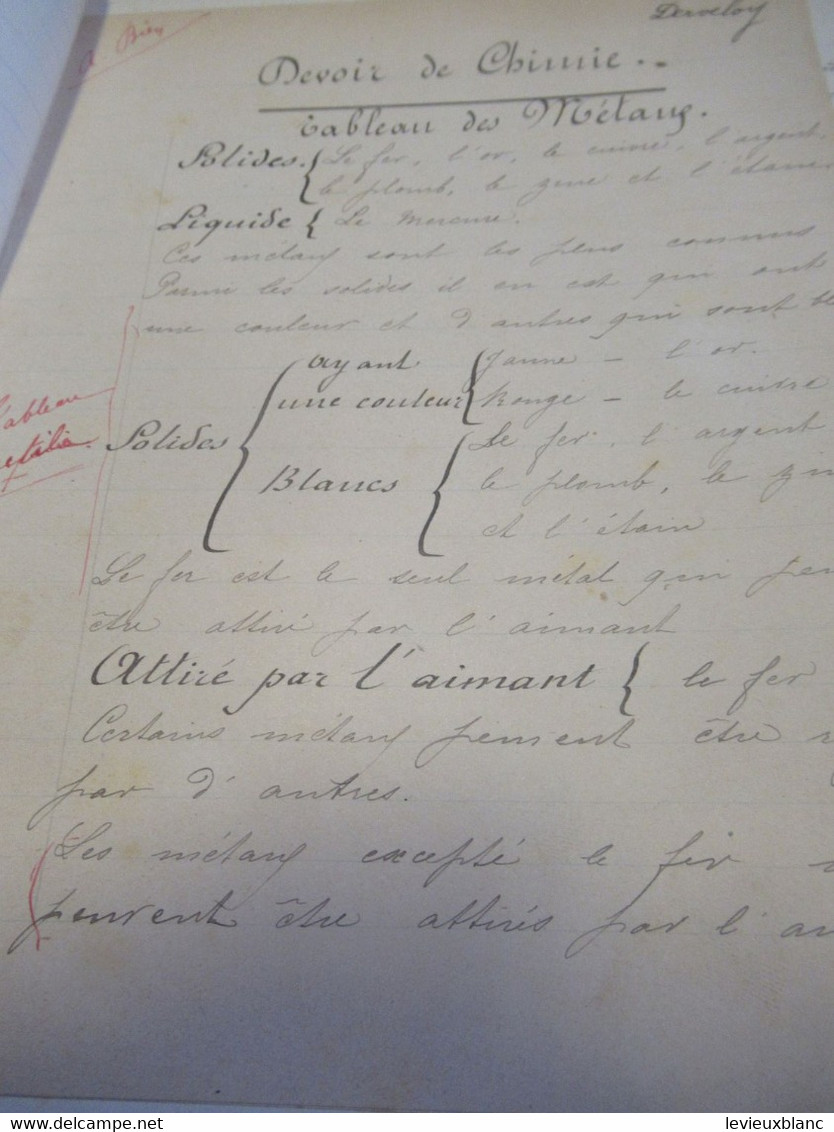 Derveloy
A. Bien
Devoir de Chimie.
Tableau des Métaux.
Solides. { Le fer, l'or, le cuivre, l'argent,
le plomb, le zinc et l'étain
Liquide { Le mercure.
Ces métaux sont les plus connus
Parmi les solides il en est qui ont
une couleur et d'autres qui sont
Tableau
Solides
ayant
une couleur
Jaune – l'or.
Rouge – le cuivre
Blancs
Le fer, l'argent
le plomb, le zin
et l'étain
Le fer est le seul métal qui peu
être attiré par l'aimant
Attiré par l'aimant { le fer
Certains métaux peuvent être
par d'autres.
Les métaux excepté le fer
peuvent être attirés par l'
delcampe.net
levieuxblanc